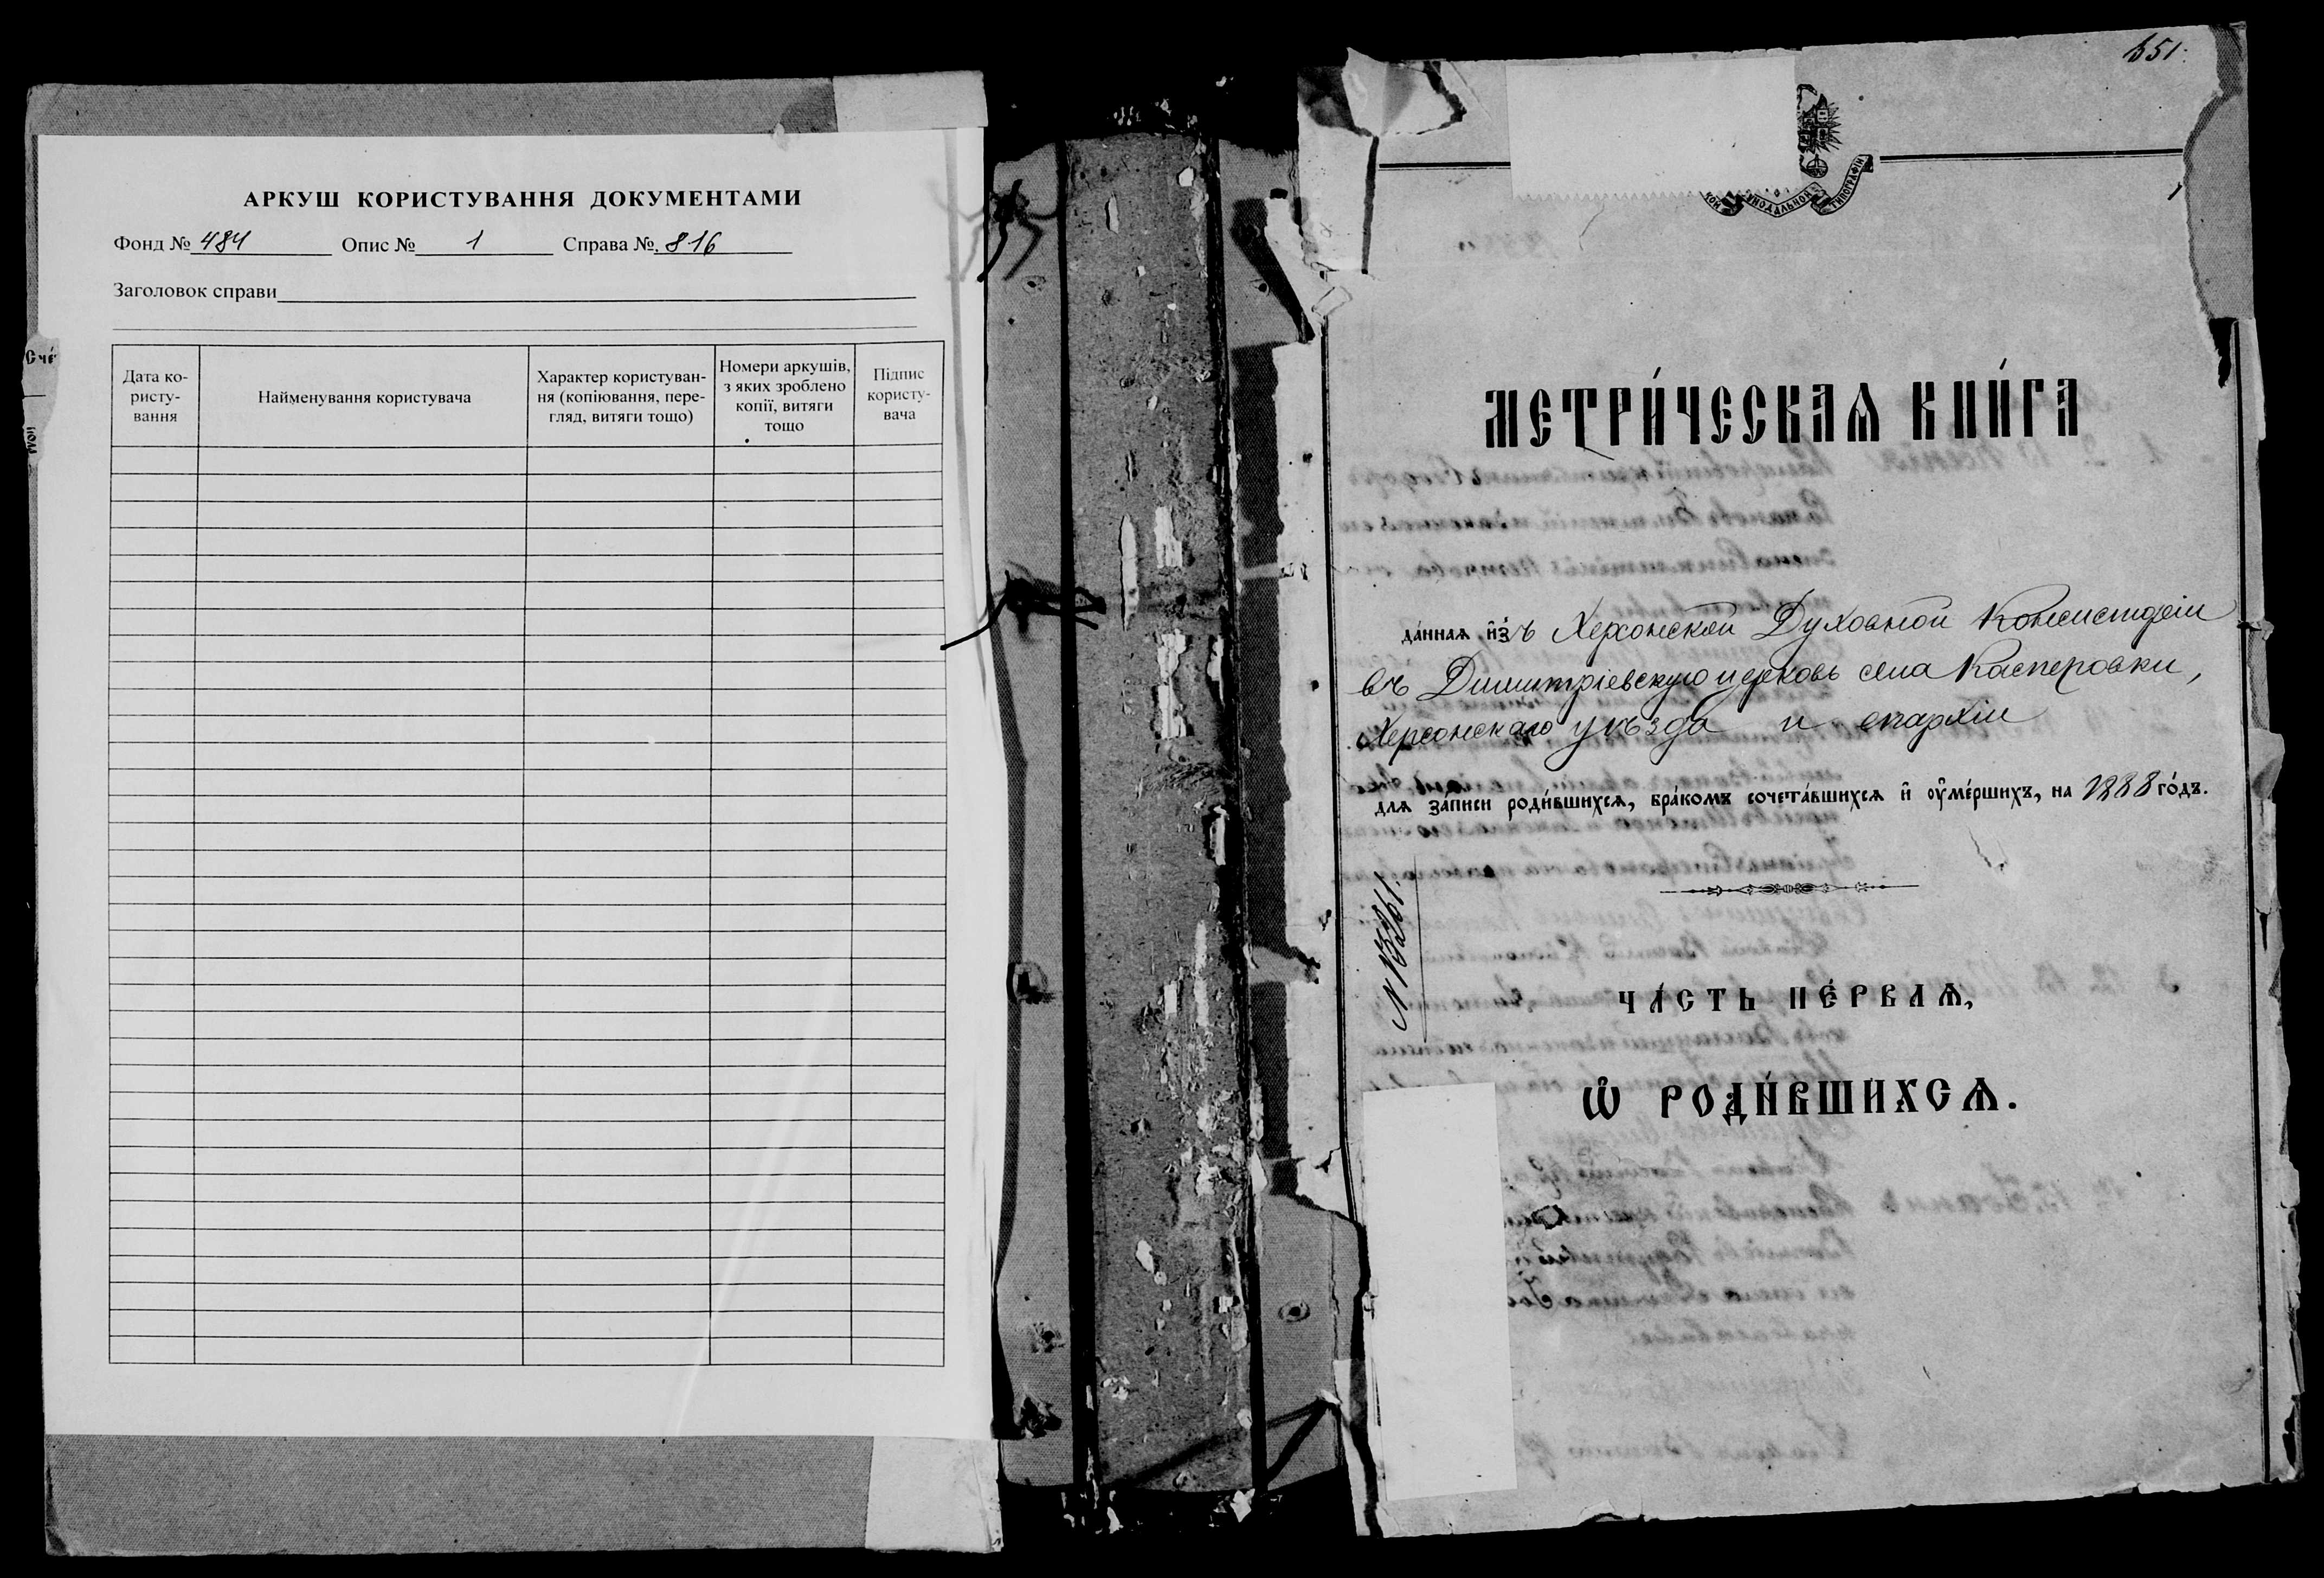 АРКУШ КОРИСТУВАННЯ ДОКУМЕНТАМИ
Фонд № 484 Опис № 1 Справа № 816
Заголовок справи
Дата ко-
ристу-
вання
Найменування користувача
Характер користуван-
ня (копіювання, пере-
гляд, витяги тощо)
Номери аркушів,
з яких зроблено
копії, витяги
тощо
Підпис
користу-
вача
651.
ТИПОГРАФІИ
МЕТРИ́ЧЕСКАѦ КНИ́ГА
да́ннаѧ и҆́зъ Херсонской Духовной Консисторіи
въ Димитріевскую церковь села Касперовки,
Херсонскаго уѣзда и епархіи
для за́писи роди́вшихсѧ, бра́комъ сочета́вшихсѧ и҆ ᲂу҆ме́ршихъ, на 1888 го́дъ.
N 13261.
ЧА́СТЬ ПЕ́РВАѦ,
Ѽ РОДИ́ВШИХСѦ.